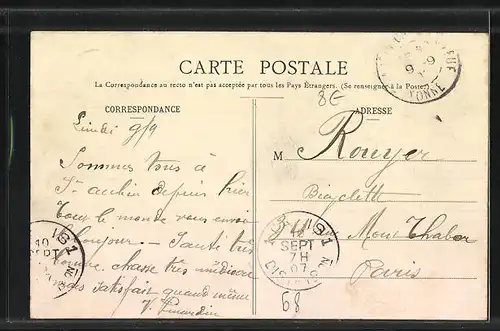 CARTE POSTALE
La Correspondance au recto n'est pas acceptée par tous les Pays Étrangers. (Se renseigner à la Poste.)
8E
CORRESPONDANCE
ADRESSE
Lundi 9/9
Sommes tous à
St aubin depuis hier
Tout le monde vous envoi
Bonjour. — Santé très
bonne. chasse très médiocre
mais satisfait quand même
M Rouyer
Bicyclette
Mont Thabor
Paris
YONNE
SEPT
7H
07
10
SEPT
68